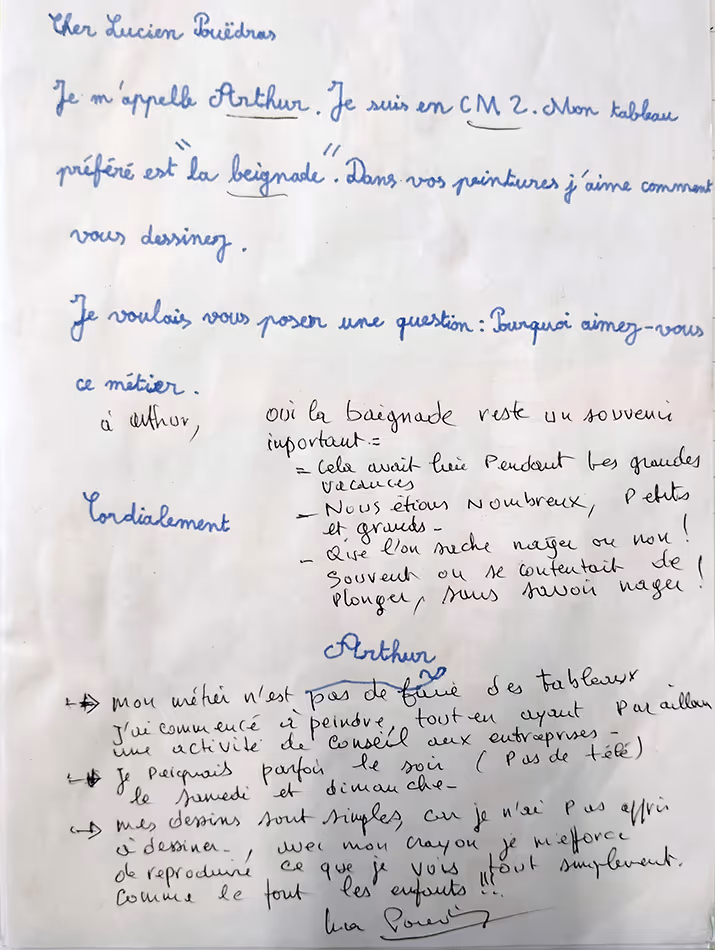 Cher Lucien Pouëdras
Je m'appelle Arthur. Je suis en CM2. Mon tableau
préféré est "la beignade". Dans vos peintures j'aime comment
vous dessinez.
Je voulais vous poser une question : Pourquoi aimez-vous
ce métier.
à arthur,
oui la baignade reste un souvenir
important :
= Cela avait lieu Pendant les grandes
vacances
- Nous étions Nombreux, Petits
et grands -
- Que l'on sache nager ou non !
Souvent on se contentait de
Plonger, sans savoir nager !
Cordialement
Arthur
→ mon métier n'est pas de faire des tableaux
j'ai commencé à peindre, tout en ayant Par ailleurs
une activité de conseil aux entreprises -
→ je Peignais parfois le soir ( Pas de télé)
le samedi et dimanche -
→ mes dessins sont simples, car je n'ai Pas appris
à dessiner -, avec mon crayon je m'efforce
de reproduire ce que je vois tout simplement.
Comme le font les enfants !!!